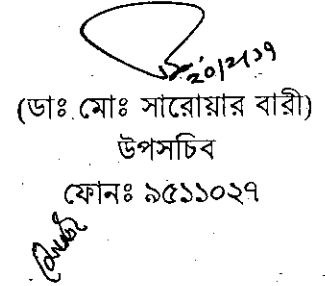 ২০/২/১৭
(ডাঃ মোঃ সারোয়ার বারী)
উপসচিব
ফোনঃ ৯৫১১০২৭